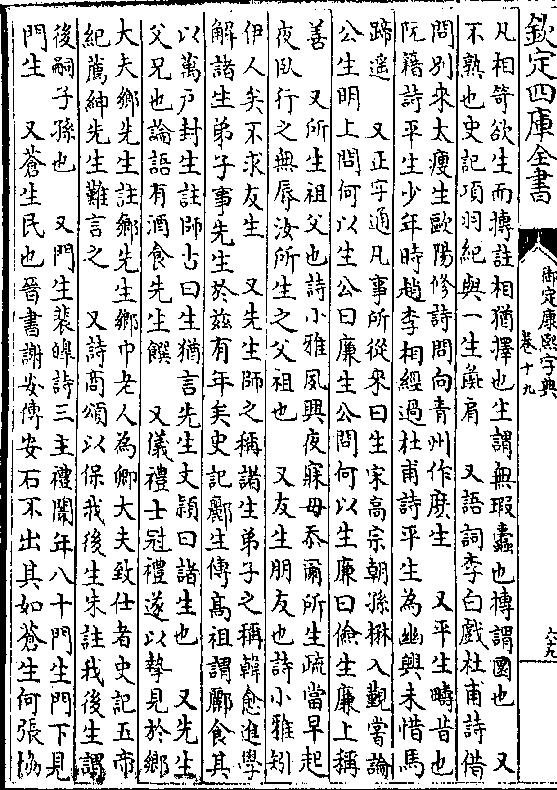 欽定四庫全書
御定康熙字典
卷十九
六十九
凡相笴欲生而摶註相猶擇也生謂無瑕蠹也摶謂圜也　又
不熟也史記項羽紀與一生彘肩　又語詞李白戲杜甫詩借
問别來太瘦生歐陽修詩問向青州作麽生　又平生疇昔也
阮籍詩平生少年時趙李相經過杜甫詩平生為幽興未惜馬
蹄遥　又正字通凡事所從來曰生宋高宗朝孫楙入覲嘗論
公生明上問何以生公曰廉生公問何以生廉曰儉生廉上稱
善　又所生祖父也詩小雅夙興夜寐毋忝爾所生疏當早起
夜臥行之無辱汝所生之父祖也　又友生朋友也詩小雅矧
伊人矣不求友生　又先生師之稱諸生弟子之稱韓愈進學
解諸生弟子事先生於兹有年矣史記酈生傳高祖謂酈食其
以萬戸封生註師古曰生猶言先生文穎曰諸生也　又先生
父兄也論語有酒食先生饌　又儀禮士冠禮遂以摯見於鄉
大夫鄉先生註鄉先生鄉中老人為卿大夫致仕者史記五帝
紀薦紳先生難言之　又詩商頌以保我後生朱註我後生謂
後嗣子孫也　又門生裴皞詩三主禮闈年八十門生門下見
門生　又蒼生民也晉書謝安傳安石不出其如蒼生何張協